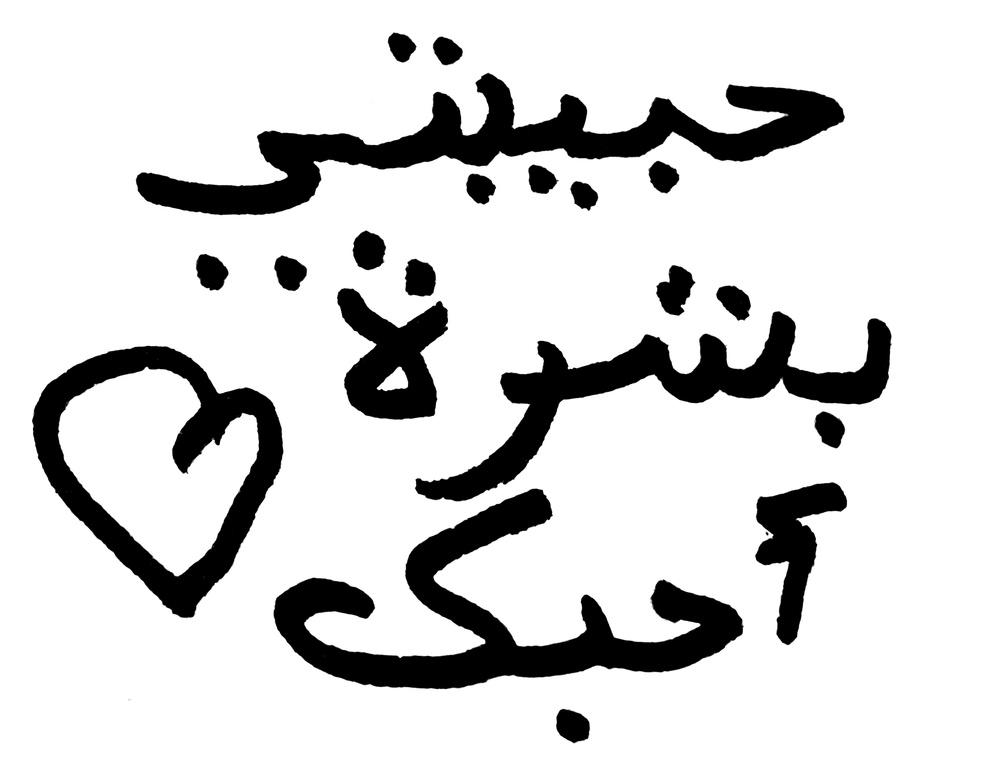 حبيبتي
بشرة
أحبك